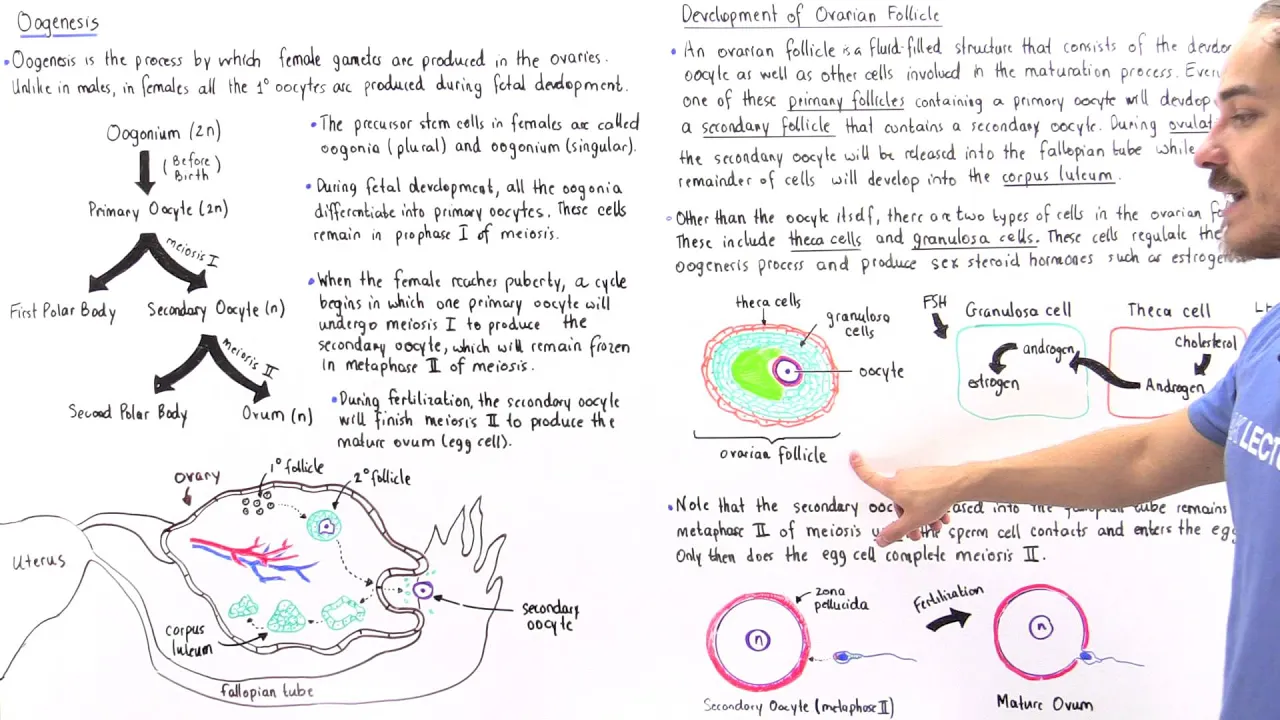 Oogenesis
• Oogenesis is the process by which female gametes are produced in the ovaries.
Unlike in males, in females all the 1° oocytes are produced during fetal development.
Oogonium (2n)
(Before
Birth)
Primary Oocyte (2n)
meiosis I
First Polar Body
Secondary Oocyte (n)
meiosis II
Second Polar Body
Ovum (n)
• The precursor stem cells in females are called
oogonia (plural) and oogonium (singular).
• During fetal development, all the oogonia
differentiate into primary oocytes. These cells
remain in prophase I of meiosis.
• When the female reaches puberty, a cycle
begins in which one primary oocyte will
undergo meiosis I to produce the
secondary oocyte, which will remain frozen
in metaphase II of meiosis.
• During fertilization, the secondary oocyte
will finish meiosis II to produce the
mature ovum (egg cell).
ovary
1° follicle
2° follicle
Uterus
corpus
luteum
secondary
oocyte
fallopian tube
Development of Ovarian Follicle
• An ovarian follicle is a fluid-filled structure that consists of the
oocyte as well as other cells involved in the maturation process.
one of these primary follicles containing a primary oocyte will
a secondary follicle that contains a secondary oocyte. During
the secondary oocyte will be released into the fallopian tube while
remainder of cells will develop into the corpus luteum.
• Other than the oocyte itself, there are two types of cells in the ovarian
These include theca cells and granulosa cells. These cells regulate the
oogenesis process and produce sex steroid hormones such as
theca cells
granulosa
cells
oocyte
ovarian follicle
FSH
Granulosa cell
androgen
estrogen
Theca cell
Cholesterol
Androgen
LECTU
• Note that the secondary into the fallopian tube remains
metaphase II of meiosis sperm cell contacts and enters the egg
Only then does the egg cell complete meiosis II.
zona
pellucida
n
Secondary Oocyte (metaphase II)
Fertilization
n
Mature Ovum